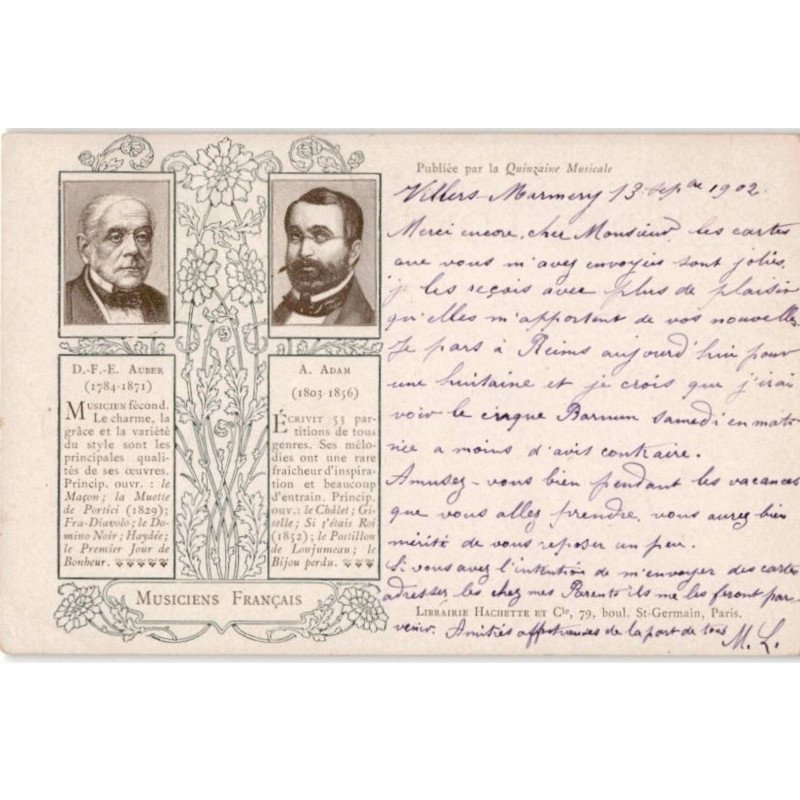 D.-F.-E. AUBER
(1784-1871)
MUSICIEN fécond.
Le charme, la
grâce et la variété
du style sont les
principales quali-
tés de ses œuvres.
Princip. ouvr. : le
Maçon; la Muette
de Portici (1829);
Fra-Diavolo; le Do-
mino Noir; Haydée;
le Premier Jour de
Bonheur.
A. ADAM
(1803-1856)
ÉCRIVIT 53 par-
titions de tous
genres. Ses mélo-
dies ont une rare
fraîcheur d'inspira-
tion et beaucoup
d'entrain. Princip.
ouv.: le Châlet; Gi-
selle; Si j'étais Roi
(1852); le Postillon
de Lonjumeau; le
Bijou perdu.
MUSICIENS FRANÇAIS
Publiée par la Quinzaine Musicale
Villers Marmery 13 Sepbre 1902.
Merci encore, cher Monsieur, les cartes
que vous m'avez envoyées sont jolies,
je les reçois avec plus de plaisir
qu'elles m'apportent de vos nouvelles.
Je pars à Reims aujourd'hui pour
une huitaine et je crois que j'irai
voir le cirque Barnum samedi en mati-
née a moins d'avis contraire.
Amusez-vous bien pendant les vacances
que vous allez prendre, vous aurez bien
mérité de vous reposer un peu.
Si vous avez l'intention de m'envoyer des cartes
adressez les chez mes Parents ils me les feront par-
LIBRAIRIE HACHETTE ET Cie, 79, boul. St-Germain, Paris.
venir. Amitiés affectueuses de la part de tous
M. L.